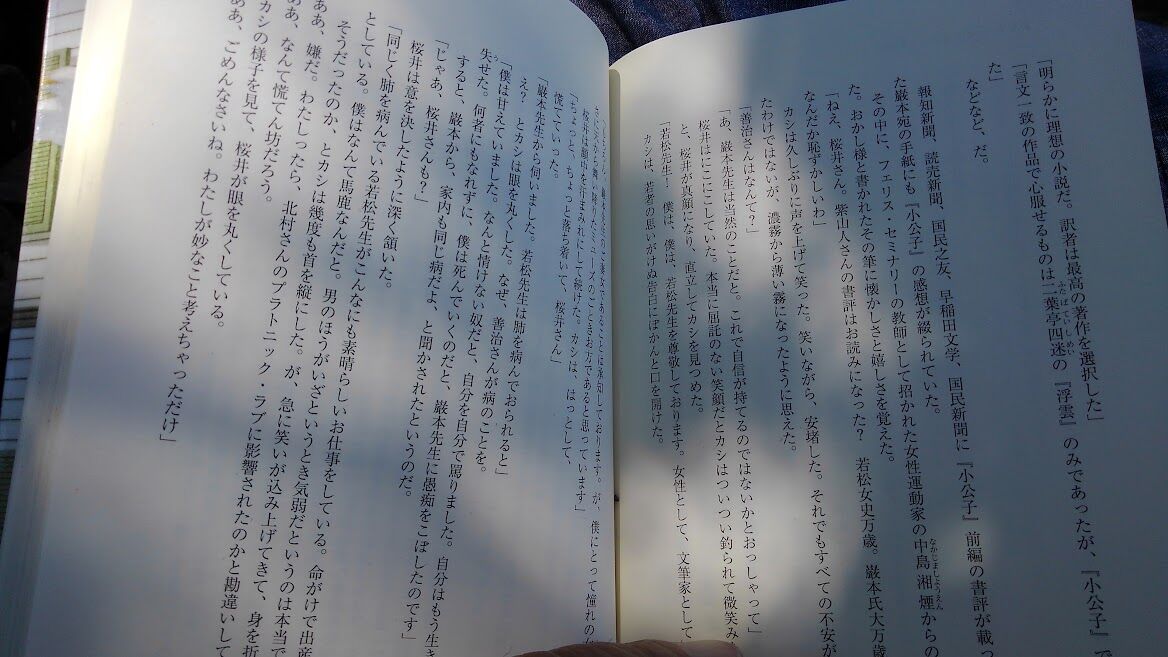 「明らかに理想の小説だ。訳者は最高の著作を選択した」
「言文一致の作品で心服せるものは二葉亭四迷の『浮雲』のみであったが、『小公子』で
た」
などなど、だ。
報知新聞、読売新聞、国民之友、早稲田文学、国民新聞に『小公子』前編の書評が載っ
た巌本宛の手紙にも『小公子』の感想が綴られていた。
その中に、フェリス・セミナリーの教師として招かれた女性運動家の中島湘煙からの
た。おかし様と書かれたその筆に懐かしさと嬉しさを覚えた。
「ねえ、桜井さん。紫山人さんの書評はお読みになった? 若松女史万歳。巌本氏大万歳
なんだか恥ずかしいわ」
カシは久しぶりに声を上げて笑った。笑いながら、安堵した。それでもすべての不安が
たわけではないが、濃霧から薄い霧になったように思えた。
「善治さんはなんて?」
「あ、巌本先生は当然のことだと。これで自信が持てるのではないかとおっしゃって」
桜井はにこにこしていた。本当に屈託のない笑顔だとカシはついつい釣られて微笑み
と、桜井が真顔になり、直立してカシを見つめた。
「若松先生! 僕は、僕は、若松先生を尊敬しております。女性として、文筆家として
カシは、若者の思いがけぬ告白にぽかんと口を開けた。
のご妻女であることは承知しております。が、僕にとって憧れの
から舞い降りたミューズのごときお方であると思っています」
桜井は顔を汗まみれにして続けた。カシは、はっとして、
「ちょっと、ちょっと落ち着いて、桜井さん」
慌てていった。
「巌本先生から伺いました。若松先生は肺を病んでおられると」
え? とカシは眼を丸くした。なぜ、善治さんが病のことを。
「僕は甘えていました。なんと情けない奴だと、自分を自分で罵りました。自分はもう生き
失せた。何者にもなれずに、僕は死んでいくのだと、巌本先生に愚痴をこぼしたのです」
すると、巌本から、家内も同じ病だよ、と聞かされたというのだ。
「じゃあ、桜井さんも?」
桜井は意を決したように深く頷いた。
「同じく肺を病んでいる若松先生がこんなにも素晴らしいお仕事をしている。命がけで出産
としている。僕はなんて馬鹿なんだと。男のほうがいざというとき気弱だというのは本当で
そうだったのか、とカシは幾度も首を縦にした。が、急に笑いが込み上げてきて、身を折
ああ、嫌だ。わたしったら、北村さんのプラトニック・ラブに影響されたのかと勘違いして
ああ、なんて慌てん坊だろう。
カシの様子を見て、桜井が眼を丸くしている。
ああ、ごめんなさいね。わたしが妙なこと考えちゃっただけ」